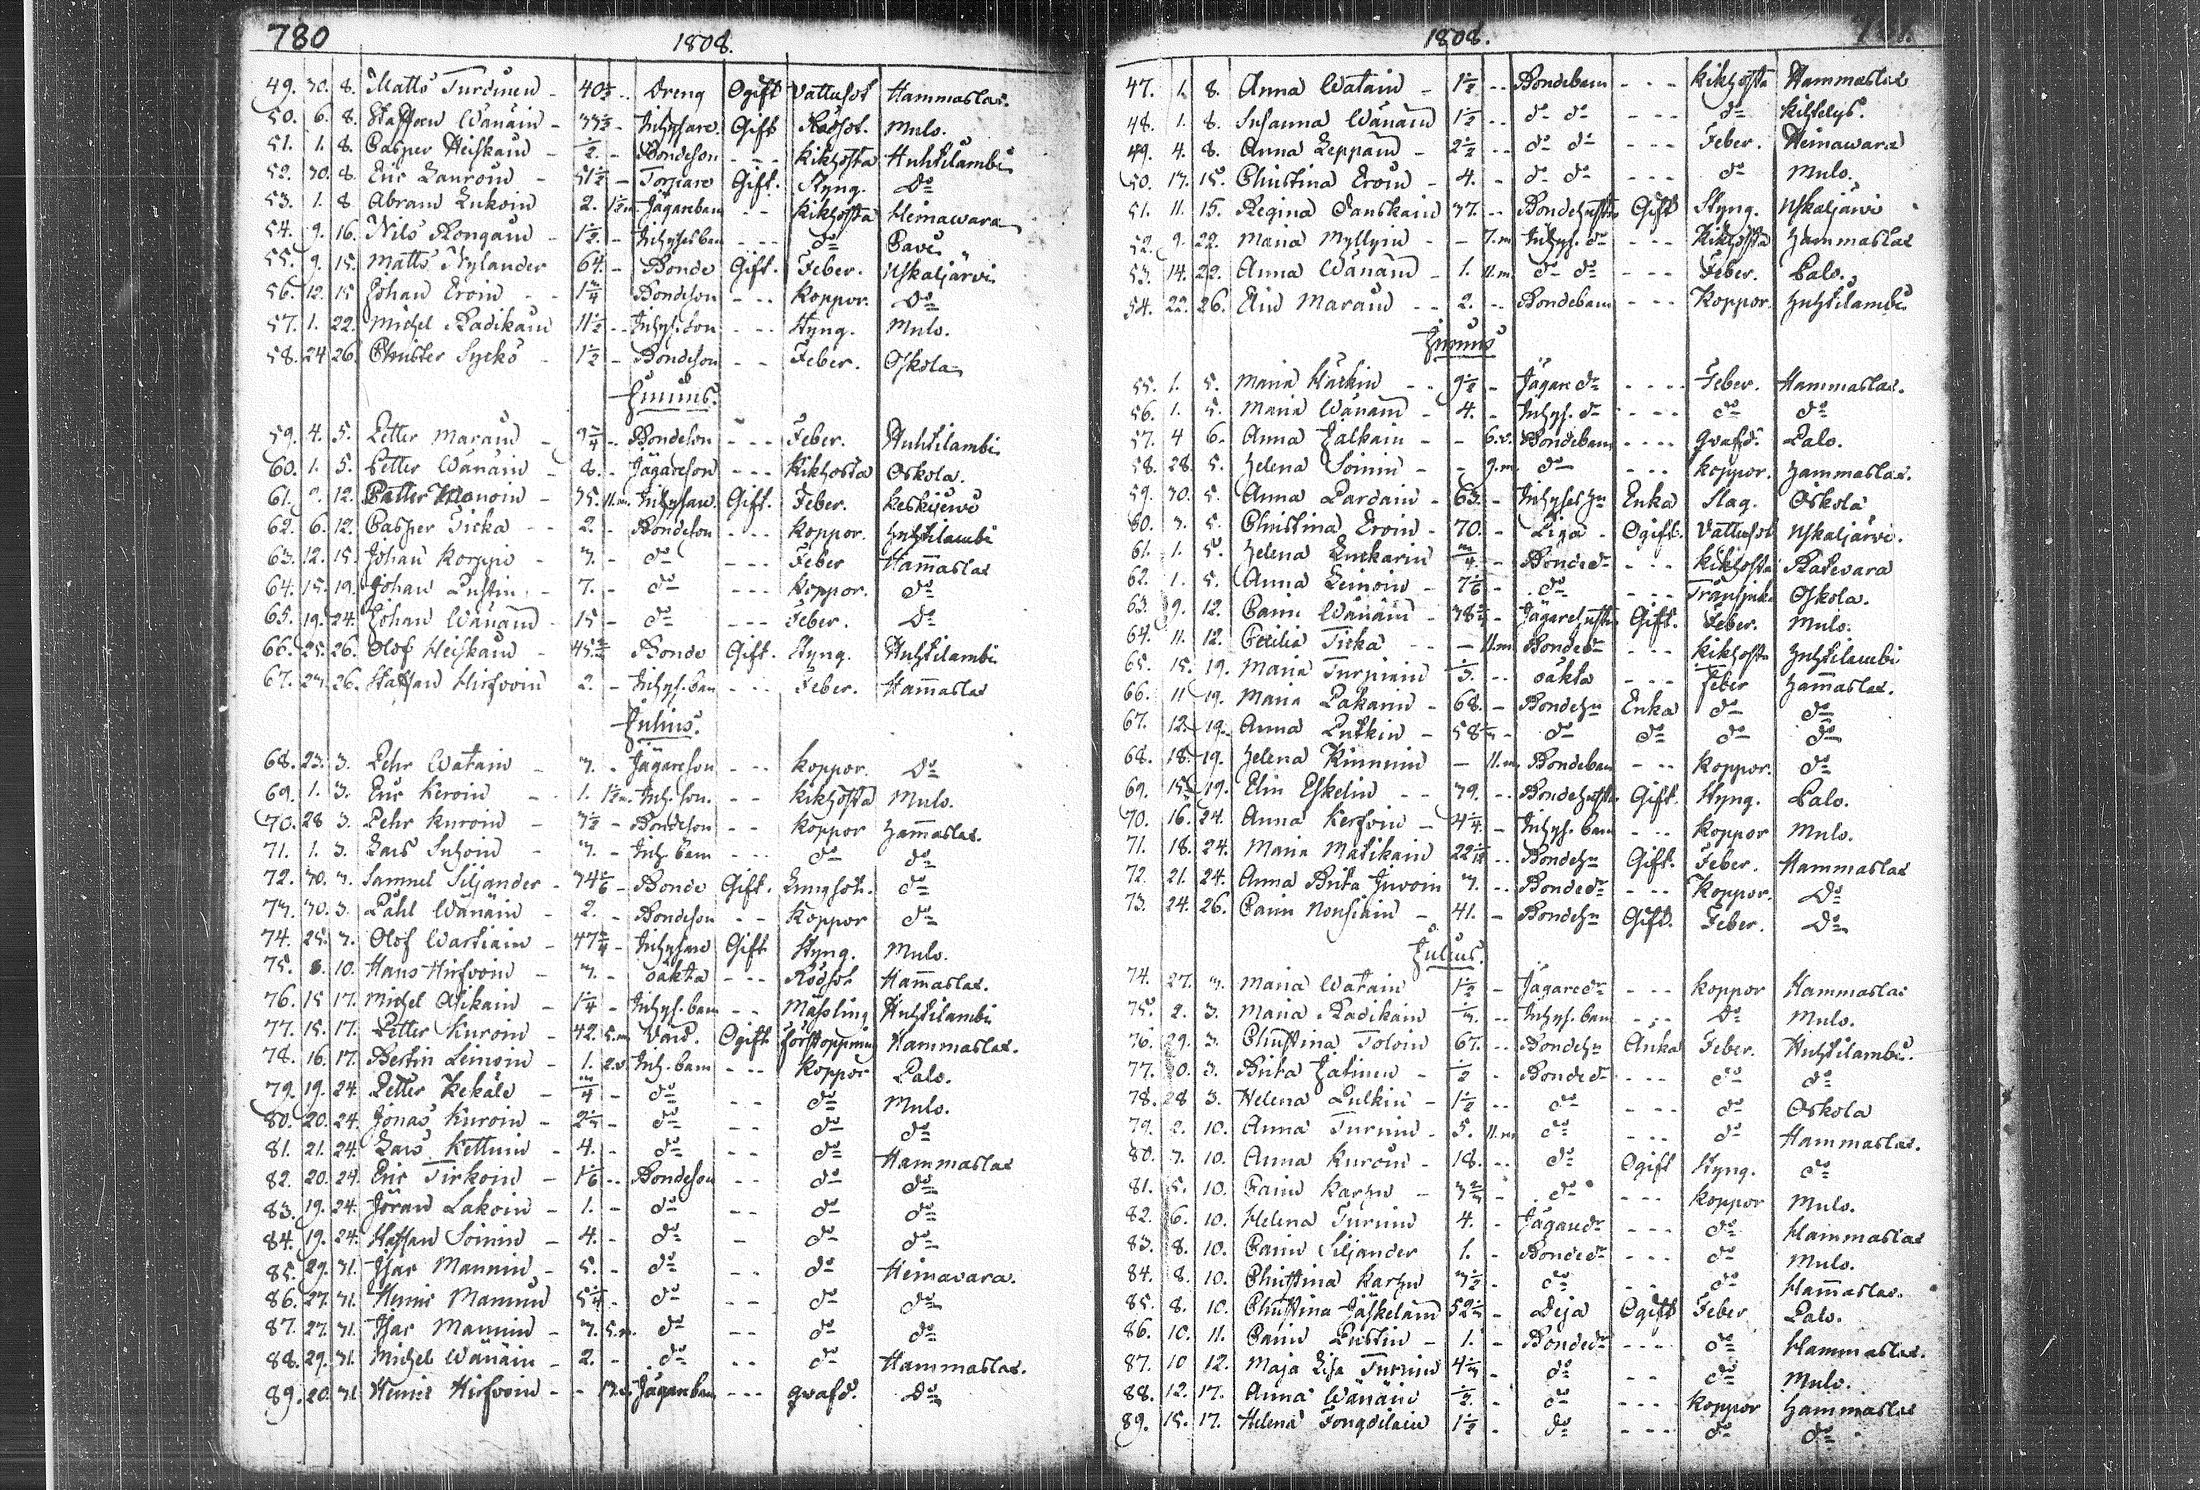 780
1808.
49. 30. 8. Matts Turunen - 40½ - Dreng Ogift Vattusot Hammaslax.
50. 6. 8. Staffan Wänäin - 33½ - Inhysare Gift Rödsot. Mulo.
51. 1. 8. Casper Heiskain - ½ - Bondeson - - - Kikhosta Huhtilambi
52. 30. 8. Eric Lauroin - 51½ - Torpare Gift. Styng. Do
53. 1. 8 Abram Lukoin 2. Jägarebarn - - Kikhosta Heinawara
54. 9. 16. Nils Rongain - 1½ - Inhysesbarn - - - do Pave
55. 9. 15. Matts Nylander 64. - Bonde Gift. Feber. Uskaljärvi
56. 12. 15 Johan Eroin - - Bondeson - - - Koppor. Do
57. 1. 22. Michel Radikain 11½ - - Inhys. son - - - Styng. Mulo.
58. 24 26. Christer Sycko - 1½ - Bondeson - - Feber. Oskola
Junius.
59. 4. 5. Petter Marain - 9¾ - Bondeson - - - Feber. Huhtilambi
60. 1. 5. Petter Wänäin - 8. - Jägareson - - - Kikhosta Oskola.
61. 12. Petter - 35. 11.m. Inhysare. Gift. Feber.
62. 6. 12. Casper Ticka - - 2. - Bondeson - - - Koppor. Huhtilambi
63. 12. 15. Johan Korppi - 3. - do - - - Feber Hamaslax
64. 15. 19. Johan Lustin - 7. - do - - - Koppor. do
65. 19. 24. Johan Wänäin - 15 - do - - - Feber. Do
66. 25. 26. Olof Heiskain - 45 - Bonde Gift. Styng. Huhtilambi
67. 23. 26. Staffan Hirfvoin 2. - Inhys. barn - - - Feber. Hamaslax
Julius.
68. 23. 3. Pehr Watain - 3. - Jägareson - - - Koppor. Do
69. 1. 3. Eric Keroin - 1. Inh. son. - - Kikhosta Mulo.
70. 28 3. Pehr Kuroin - 3½ - Bondeson - - Koppor Hamaslax.
71. 1. 3. Lars Suhoin - 3. - Inh. barn - - - do do
72. 30. 3. Samuel Siljander - 34 - Bonde Gift. Lungsot. do
73. 30. 3. Påhl Wänäin - 2. - Bondeson - - Koppor do
74. 25. 3. Olof Wartiain - 47¾ - Inhysare Gift Styng. Mulo.
75. 8. 10. Hans Hirfvoin - 3. - oäkta - - - Rödsot Hamaslax.
76. 15 17. Michel Asikain - 1¼ - Inhys. barn - - Mässling Huhtilambi
77. 15. 17. Petter Kuroin - 42. 5.m Ogift förstoppning Hammaslax.
78. 16. 17. Bertin Leinoin - 1. 2.v. Inh. barn - - - Koppor Palo.
79. 19. 24. Petter Kekäle - ¾ - do - - do Mulo.
80. 20. 24. Jonas Kuroin - 2⅓ - do - - do do
81. 21. 24. Lars Kettuin - 4. - do - - do Hammaslax
82. 20. 24. Eric Tirkoin - 1⅙ - - Bondeson - - do do
83. 19. 24. Jöran Lakoin - 1. - do - - do do
84. 19. 24. Staffan Soinin - 4. - do - do do
85. 29. 31. Isac Mannin - 5. - do - - do Heinavara.
86. 27. 31. Henric Mannin 5¼ - do - - do do
87. 27. 31. Isac Mannin - 3. 5.m. do - - do do
88. 29. 31. Michel Wänäin - 2. - do - - do Hammaslax.
89. 20. 31 Henric Hirfvoin - - Jägarebarn - - - qvafd. Do
1808.
47. 1. 8. Anna Watain - 1½ - - Bondebarn - - - Kikhosta Hammaslax
48. 1. 8. Susanna Wänäin 1½ - - do do - - - do Kiihtelys.
49. 4. 8. Anna Leppäin - 2½ - - do do - - - Feber. Heinawara
50. 13. 15. Christina Eroin - 4. - do do - - - do Mulo.
51. 11. 15. Regina Danskain 37. - - Bondehustru Gift Styng. Uskaljärvi
52. 9. 22. Maria Myllyin - - 7.m Inhys. do - - - Kikhosta Hammaslax
53. 14. 22. Anna Wänäin - 1. 11.m. do do - - - Feber. Palo.
54. 22. 26. Elin Marain - - 2. - - Bondebarn - - - Koppor. Huhtilambi
Junius
55. 1. 5. Maria Härkin - - 9½ - Jägare do - - - - Feber. Hammaslax.
56. 1. 5. Maria Wänäin - 4. - Inhys. do - - - do do
57. 4 6. Anna Jalkain - - 6.v. Bondebarn - - - - qvafd. Palo.
58. 28. 5. Helena Soinin - - 9.m. do - - - Koppor. Hammaslax.
59. 30. 5. Anna Pardain - 63. - Inhyses hu Enka Slag. Oskola
60. 3. 5. Christina Eroin - 70. - Piga - Ogift. Vattusot Uskaljärvi.
61. 1. 5. Helena Luckarin ¾ - Bonde dr - - - Kikhosta Ratevara
62. 1. 5. Anna Leinoin - do - - - Oskola.
63. 9. 12. Carin Wänäin - 38 - Jägarehustru Gift. Feber. Mulo.
64. 11. 12. Cecilia Ticka - - 11.m Bonde dr - - - Kikhosta Huhtilambi
65. 15. 19. Maria Turpiain - - oäkta - - - Feber Hamaslax.
66. 11 19. Maria Pakarin - 68. - Bondehu Enka do do
67. 12. 19. Anna Putkin - 58 - do do do do
68. 18. 19. Helena Kinnunin - 11.m. Bondebarn - - - Koppor. do
69. 15. 19. Elin Eskelin - - 39. - - Bondehustru Gift. Styng. Palo.
70. 16. 24. Anna Kerfvoin - 4¼ - Inhys. barn - - - Koppor Mulo.
71. 18. 24. Maria Matikain 22 - - Bondehu Gift. Feber. Hammaslax
72. 21. 24. Anna Brita Juvoin 3. - - Bonde dr - - - Koppor. Do
73. 24. 26. Carin Nousiain - 41. - Bondehu Gift. Feber. Do
Julius.
74. 27. 3. Maria Watain 1½ - Jägare dr - - - Koppor Hammaslax
75. 2. 3. Maria Radikain ⅓ - - Inhys. barn - - - Do Mulo.
76. 29. 3. Christina Toloin 67. - - Bondehu Änka Feber. Huhtilambi.
77. 30. 3. Brita Jatinen - ½ - Bonde dr - - - do do
78. 28 3. Helena Pulkin - 1½ - - do - - - do Oskola
79. 2. 10. Anna Turunin - 5. 11.m do - - - do Hammaslax.
80. 3. 10. Anna Kuroin - 18. - - do Ogift Styng. do
81. 5. 10. Carin Karhu - 3⅔ - do - - - Koppor Mulo.
82. 6. 10. Helena Turunin 4. - Jägare dr - - - do Hammaslax
83. 8. 10. Carin Siljander 1. - Bonde dr - - - do Mulo.
84. 8. 10. Christina Karhu 3½ - do - - do Hamaslax.
85. 8. 10. Christina Jäskeläin 52½ - Deja Ogift Feber Palo.
86. 10. 11. Carin Lustin - 1. - Bonde dr - - - do Hammaslax.
87. 10 12. Maja Lisa Turunin - do - - do Mulo.
88. 12. 17. Anna Wänäin - do - - - Koppor Hammaslax
89. 15. 17. Helena 1½ - do - - - do do